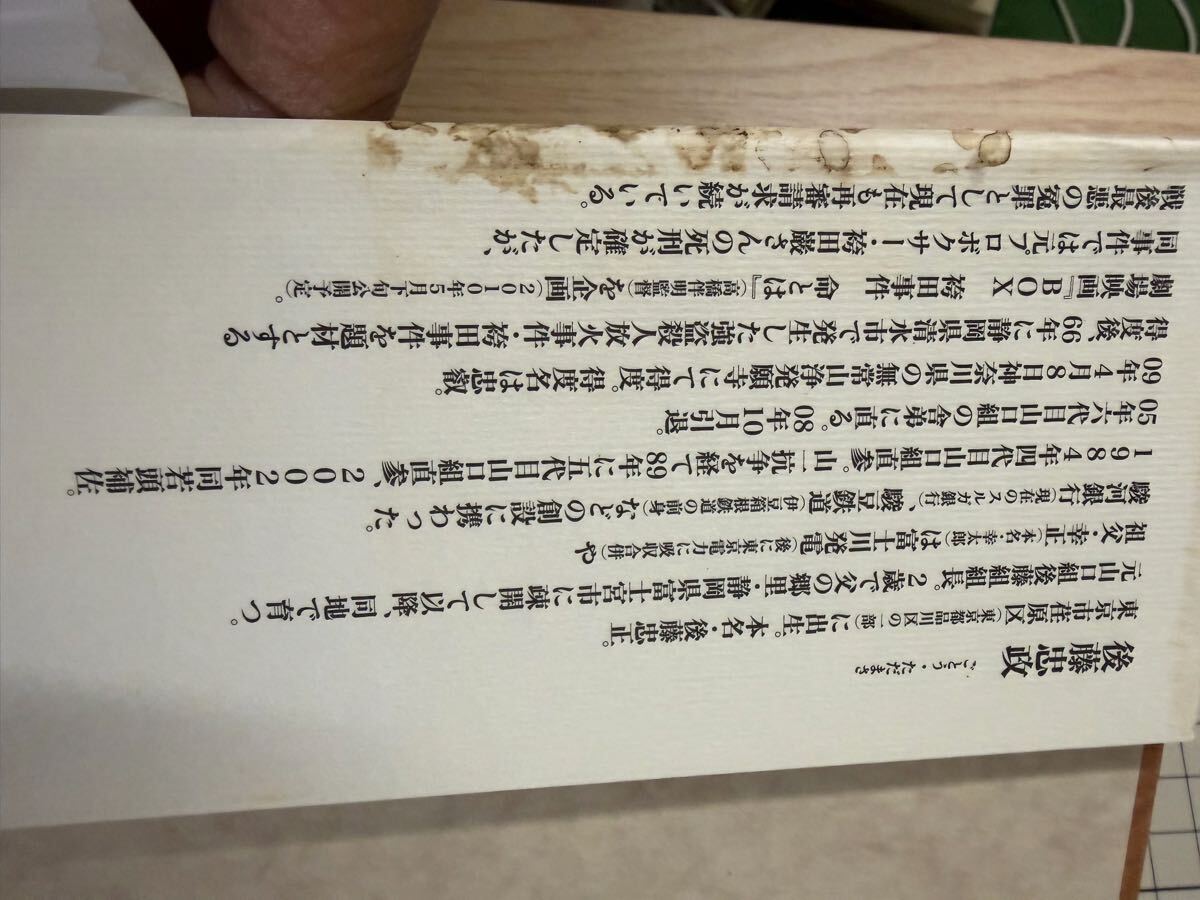 後藤忠政 ごとう・ただまさ
東京市荏原区(東京都品川区の一部)に出生。本名・後藤忠正。
元山口組後藤組組長。2歳で父の郷里・静岡県富士宮市に疎開して以降、同地で育つ。
祖父・幸正(本名・幸太郎)は富士川発電(後に東京電力に吸収合併)や
駿河銀行(現在のスルガ銀行)、駿豆鉄道(伊豆箱根鉄道の前身)などの創設に携わった。
1984年四代目山口組直参。山一抗争を経て89年に五代目山口組直参、2002年同若頭補佐。
05年六代目山口組の舎弟に直る。08年10月引退。
09年4月8日神奈川県の無常山浄発願寺にて得度。得度名は忠叡。
得度後、66年に静岡県清水市で発生した強盗殺人放火事件・袴田事件を題材とする
劇場映画『BOX 袴田事件 命とは』(高橋伴明監督)を企画(2010年5月下旬公開予定)。
同事件では元プロボクサー・袴田巌さんの死刑が確定したが、
戦後最悪の冤罪として現在も再審請求が続いている。